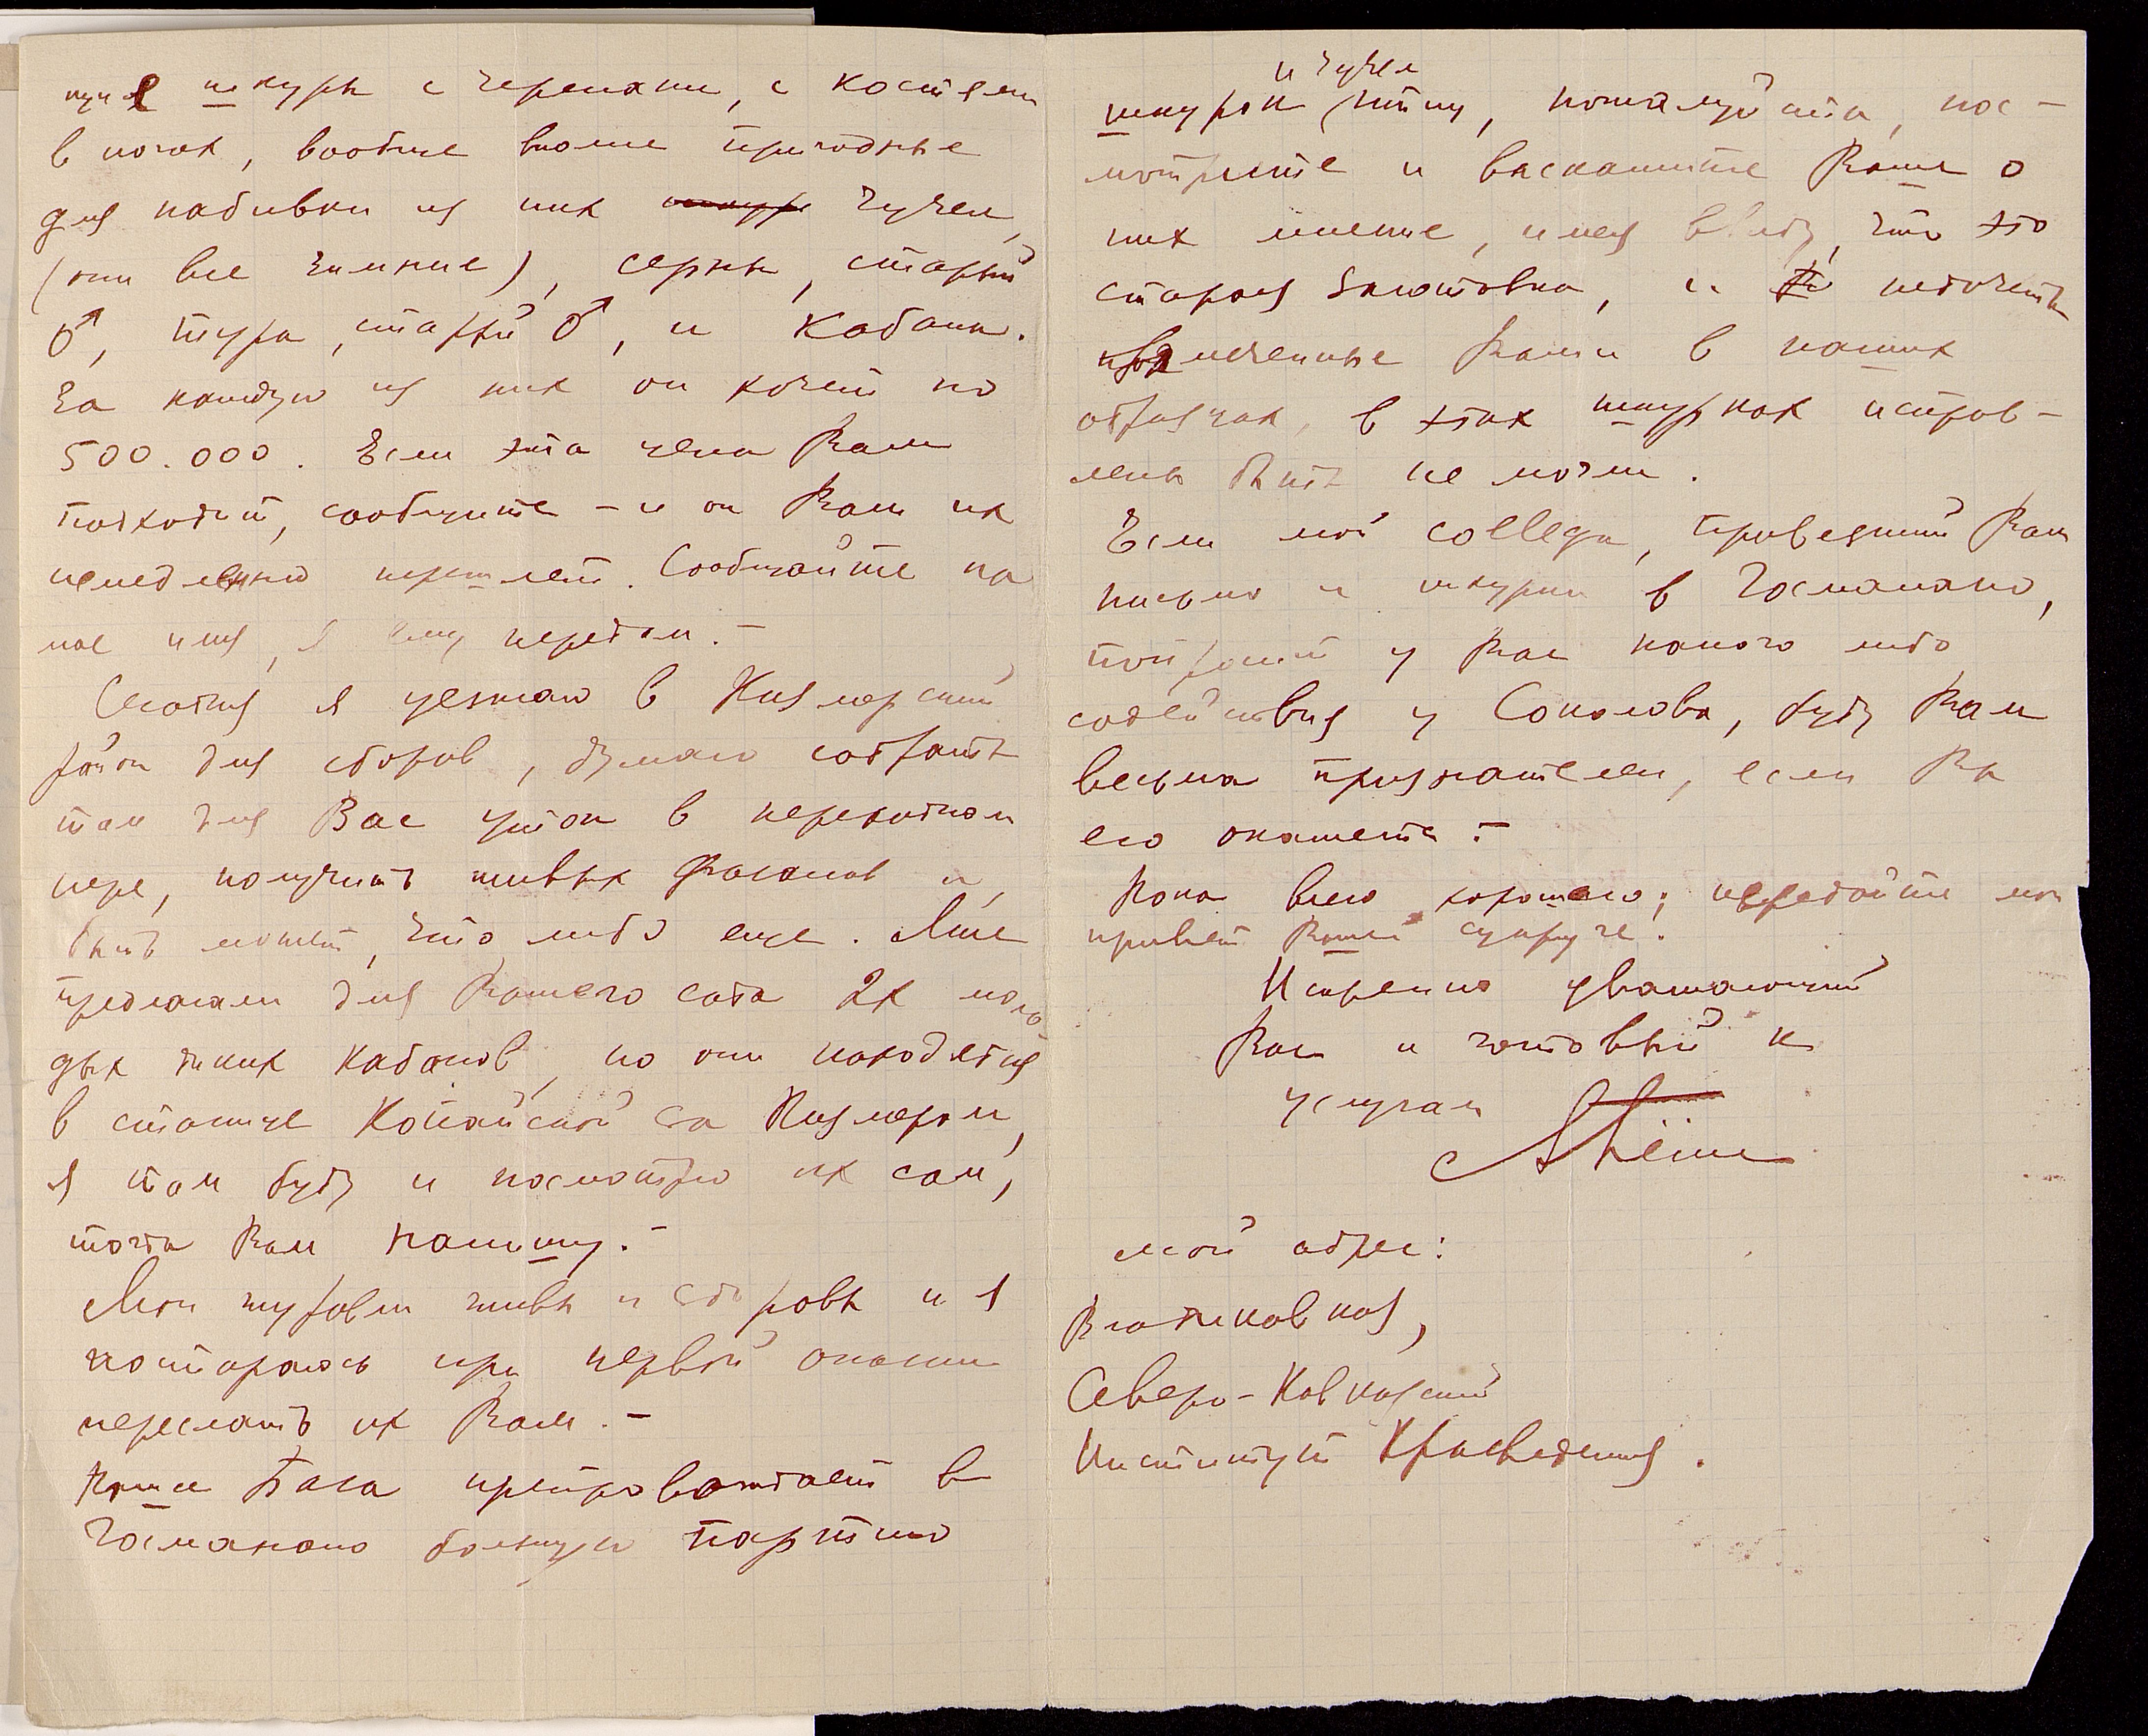 шкуры с черепами, с костями
в ногах, вообще вполне пригодные
для набивки из них чучел,
(они все зимние), серны, старый
♂, тура, старый ♂, и кабана.
За каждую из них он хочет по
500.000. Если эта цена Вам
подходит, сообщите – и он Вам их
немедленно перешлет. Сообщайте на
мое имя, я ему передам. –
Сегодня я уезжаю в Кизлярский
район для сборов, думаю собрать
там для Вас уток в переходном
пере, получить живых фазанов и,
быть может, что либо еще. Мне
предлагали для Вашего сада 2х моло-
дых диких кабанов, но они находятся
в станице Копайской за Кизляром,
я там буду и посмотрю их сам,
тогда Вам напишу. –
Мои журавли живы и здоровы и я
постараюсь при первой оказии
переслать их Вам. –
Наша База препровождает в
Госмагазин большую партию
и чучел
шкурок птиц, пожалуйста, пос-
мотрите и выскажите Ваше о
них мнение, имея ввиду, что это
старая заготовка, и недочеты
Вами в наших
образцах, в этих шкурках исправ-
лены быть не могли.
Если мой collega, привезший Вам
письмо и шкурки в
попросит у Вас какого либо
содействия у Соколова, буду Вам
весьма признателен, если Вы
его окажете. –
Пока всего хорошего; передайте мой
привет Вашей супруге.
Искренно уважающий
Вас и готовый к
услугам
мой адрес:
Владикавказ,
Северо-Кавказский
Институт Краеведения.